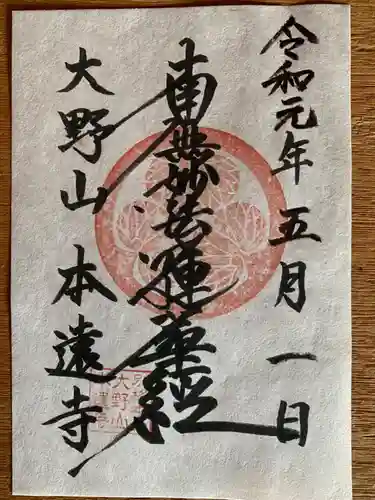 令和元年五月一日
南無妙法蓮華経
大野山本遠寺